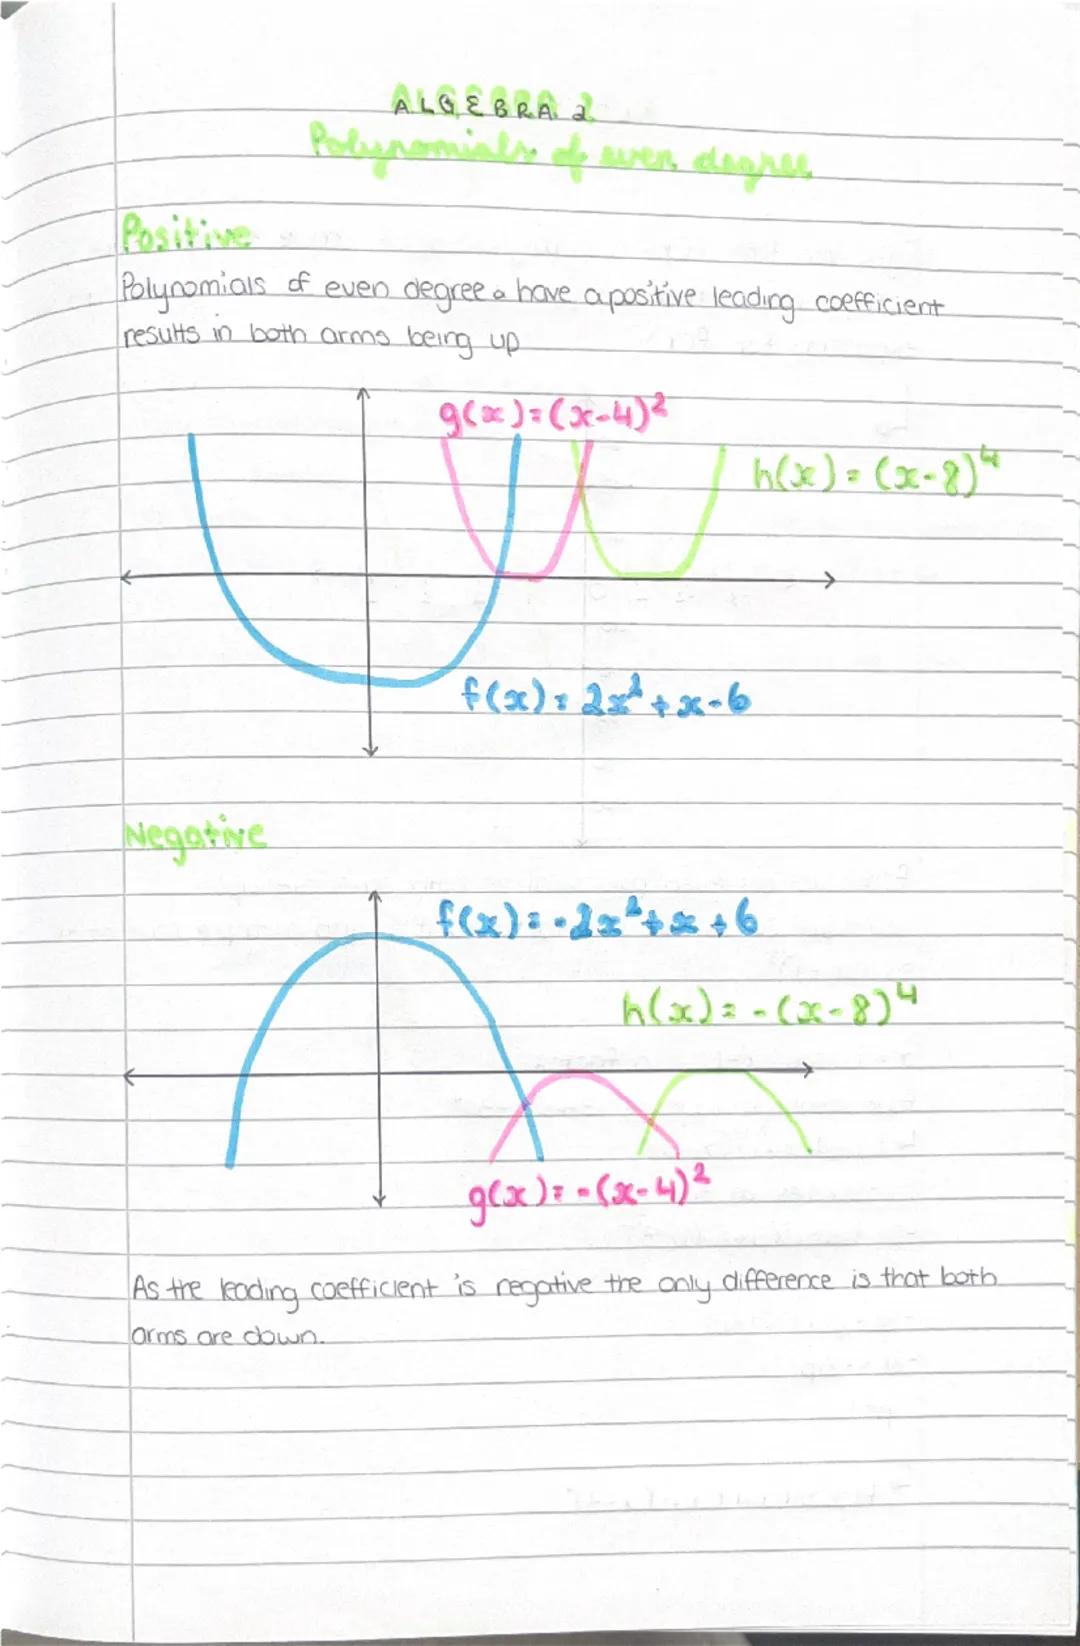 ALGEBRA 2
Polynomials of even degree
Positive
Polynomials of even degree have a positive leading coefficient
results in both arms being up
g(x)=(x-4)²
h(x) = (x-8)⁴
f(x) = 2x²+x-6
Negative
f(x) = -2x²+x+6
h(x) = -(x-8)⁴
g(x) = -(x-4)²
As the leading coefficient is negative the only difference is that both
arms are down.